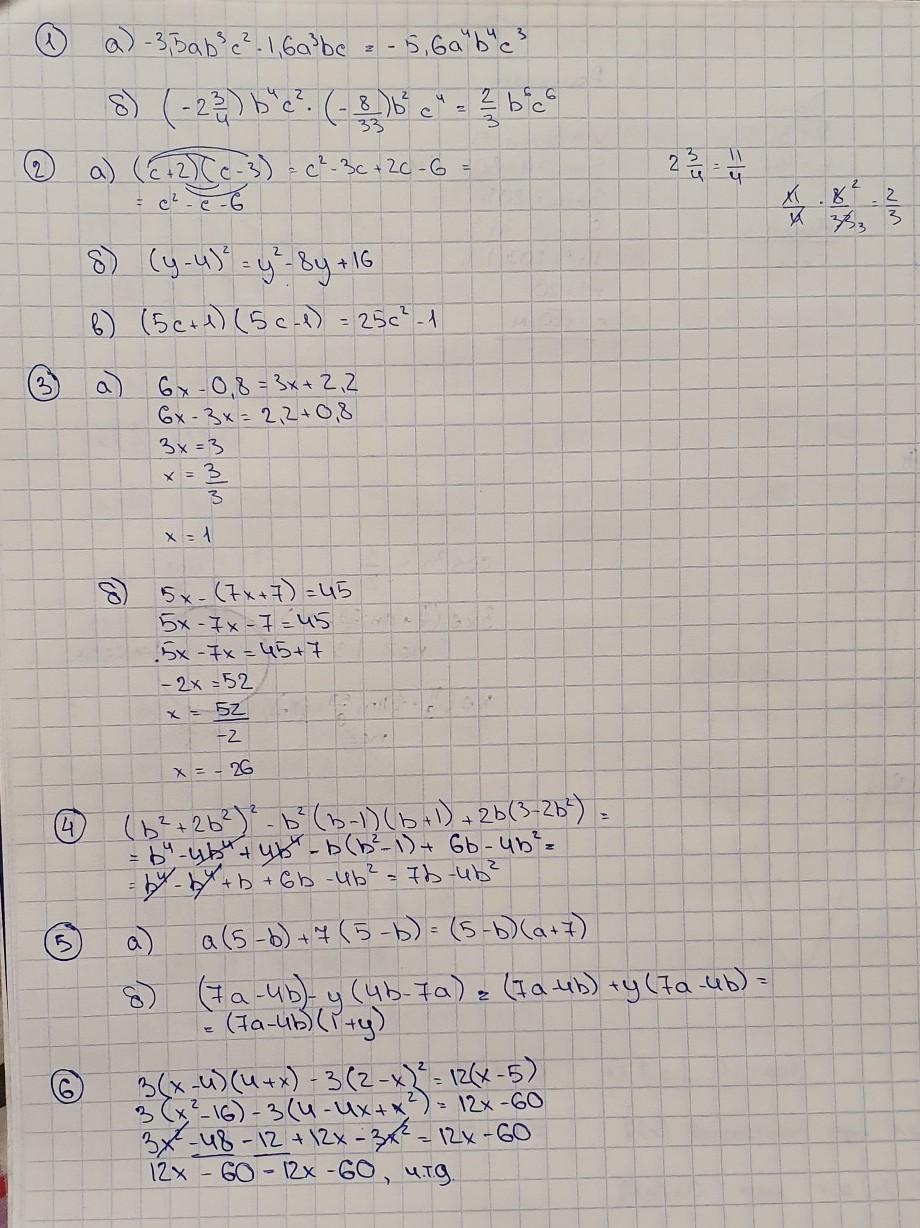 ① а) -3,5ab³c² · 1,6a³bc = -5,6a⁴b⁴c³
б) (-2 3/4) b⁴c² · (-8/33) b²c⁴ = 2/3 b⁶c⁶
② а) (c+2)(c-3) = c²-3c+2c-6 =
= c²-c-6
2 3/4 = 11/4
11/4 · 8²/33₃ = 2/3
б) (y-4)² = y²-8y+16
в) (5c+1)(5c-1) = 25c²-1
③ а) 6x-0,8=3x+2,2
6x-3x=2,2+0,8
3x=3
x = 3/3
x = 1
б) 5x-(7x+7)=45
5x-7x-7=45
5x-7x=45+7
-2x=52
x = 52/-2
x = -26
④ (b²+2b²)² - b²(b-1)(b+1) + 2b(3-2b²) =
= b⁴-4b⁴+4b⁴-b(b²-1)+ 6b-4b²=
= b⁴-b⁴+b+6b-4b² = 7b-4b²
⑤ а) a(5-b)+7(5-b) = (5-b)(a+7)
б) (7a-4b)-y(4b-7a) = (7a-4b)+y(7a-4b) =
= (7a-4b)(1+y)
⑥ 3(x-4)(4+x) - 3(2-x)² = 12(x-5)
3(x²-16)-3(4-4x+x²) = 12x-60
3x²-48-12+12x-3x² = 12x-60
12x-60=12x-60, ч.т.д.